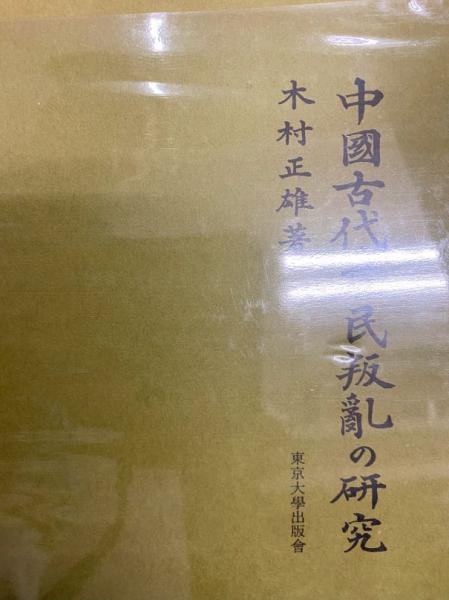 中國古代民叛亂の研究
木村正雄著
東京大學出版會